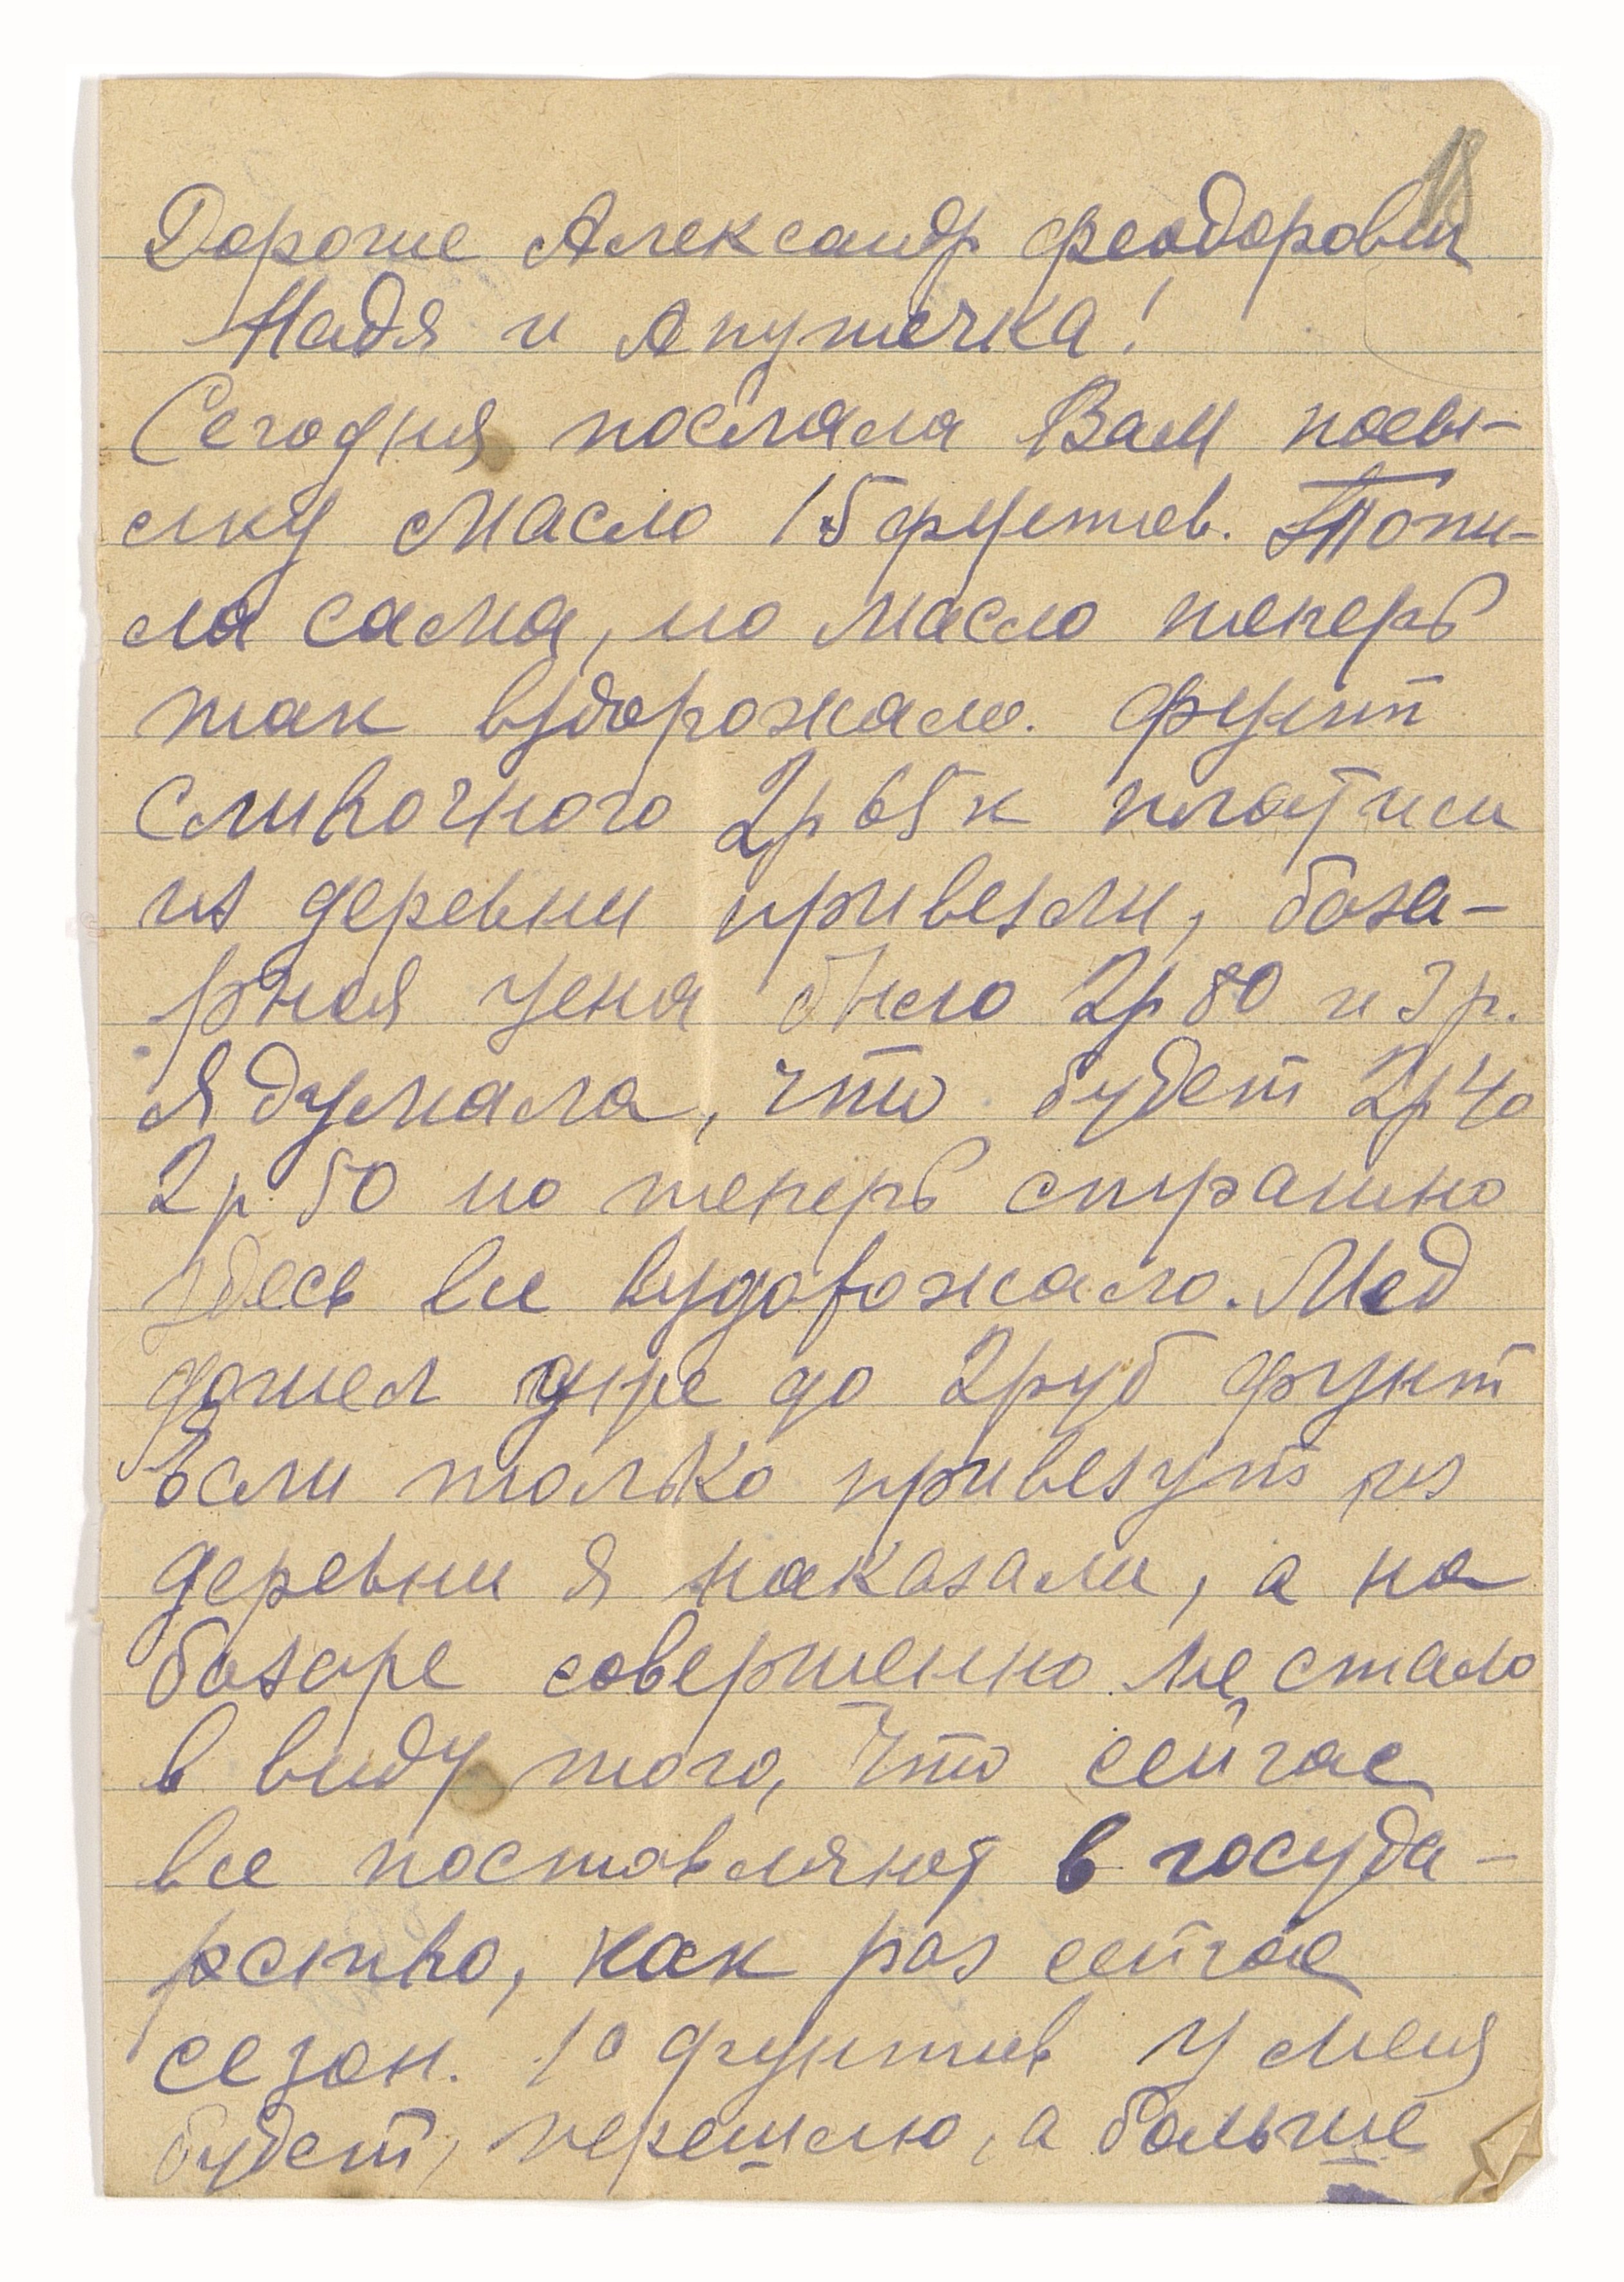 18
Дорогие Александр Феодорович
Надя и Анушечка!
Сегодня послала Вам посы-
лку масло 15 фунтов. Топи-
ла сама, но масло теперь
так вздорожало. Фунт
сливочного 2р 65 к платили
из деревни привезли, база-
рная цена было 2р 80 и 3 р.
Я думала, что будет 2р 40
2 р. 50 но теперь страшно
здесь все вздорожало. Мед
дошел уже до 2 руб фунт
Если только привезут из
деревни я наказали, а на
базаре совершенно не стало
в виду того, что сейчас
все поставляют в госуда-
рство, как раз сейчас
сезон. 10 фунтов у меня
будет, перешлю, а больше